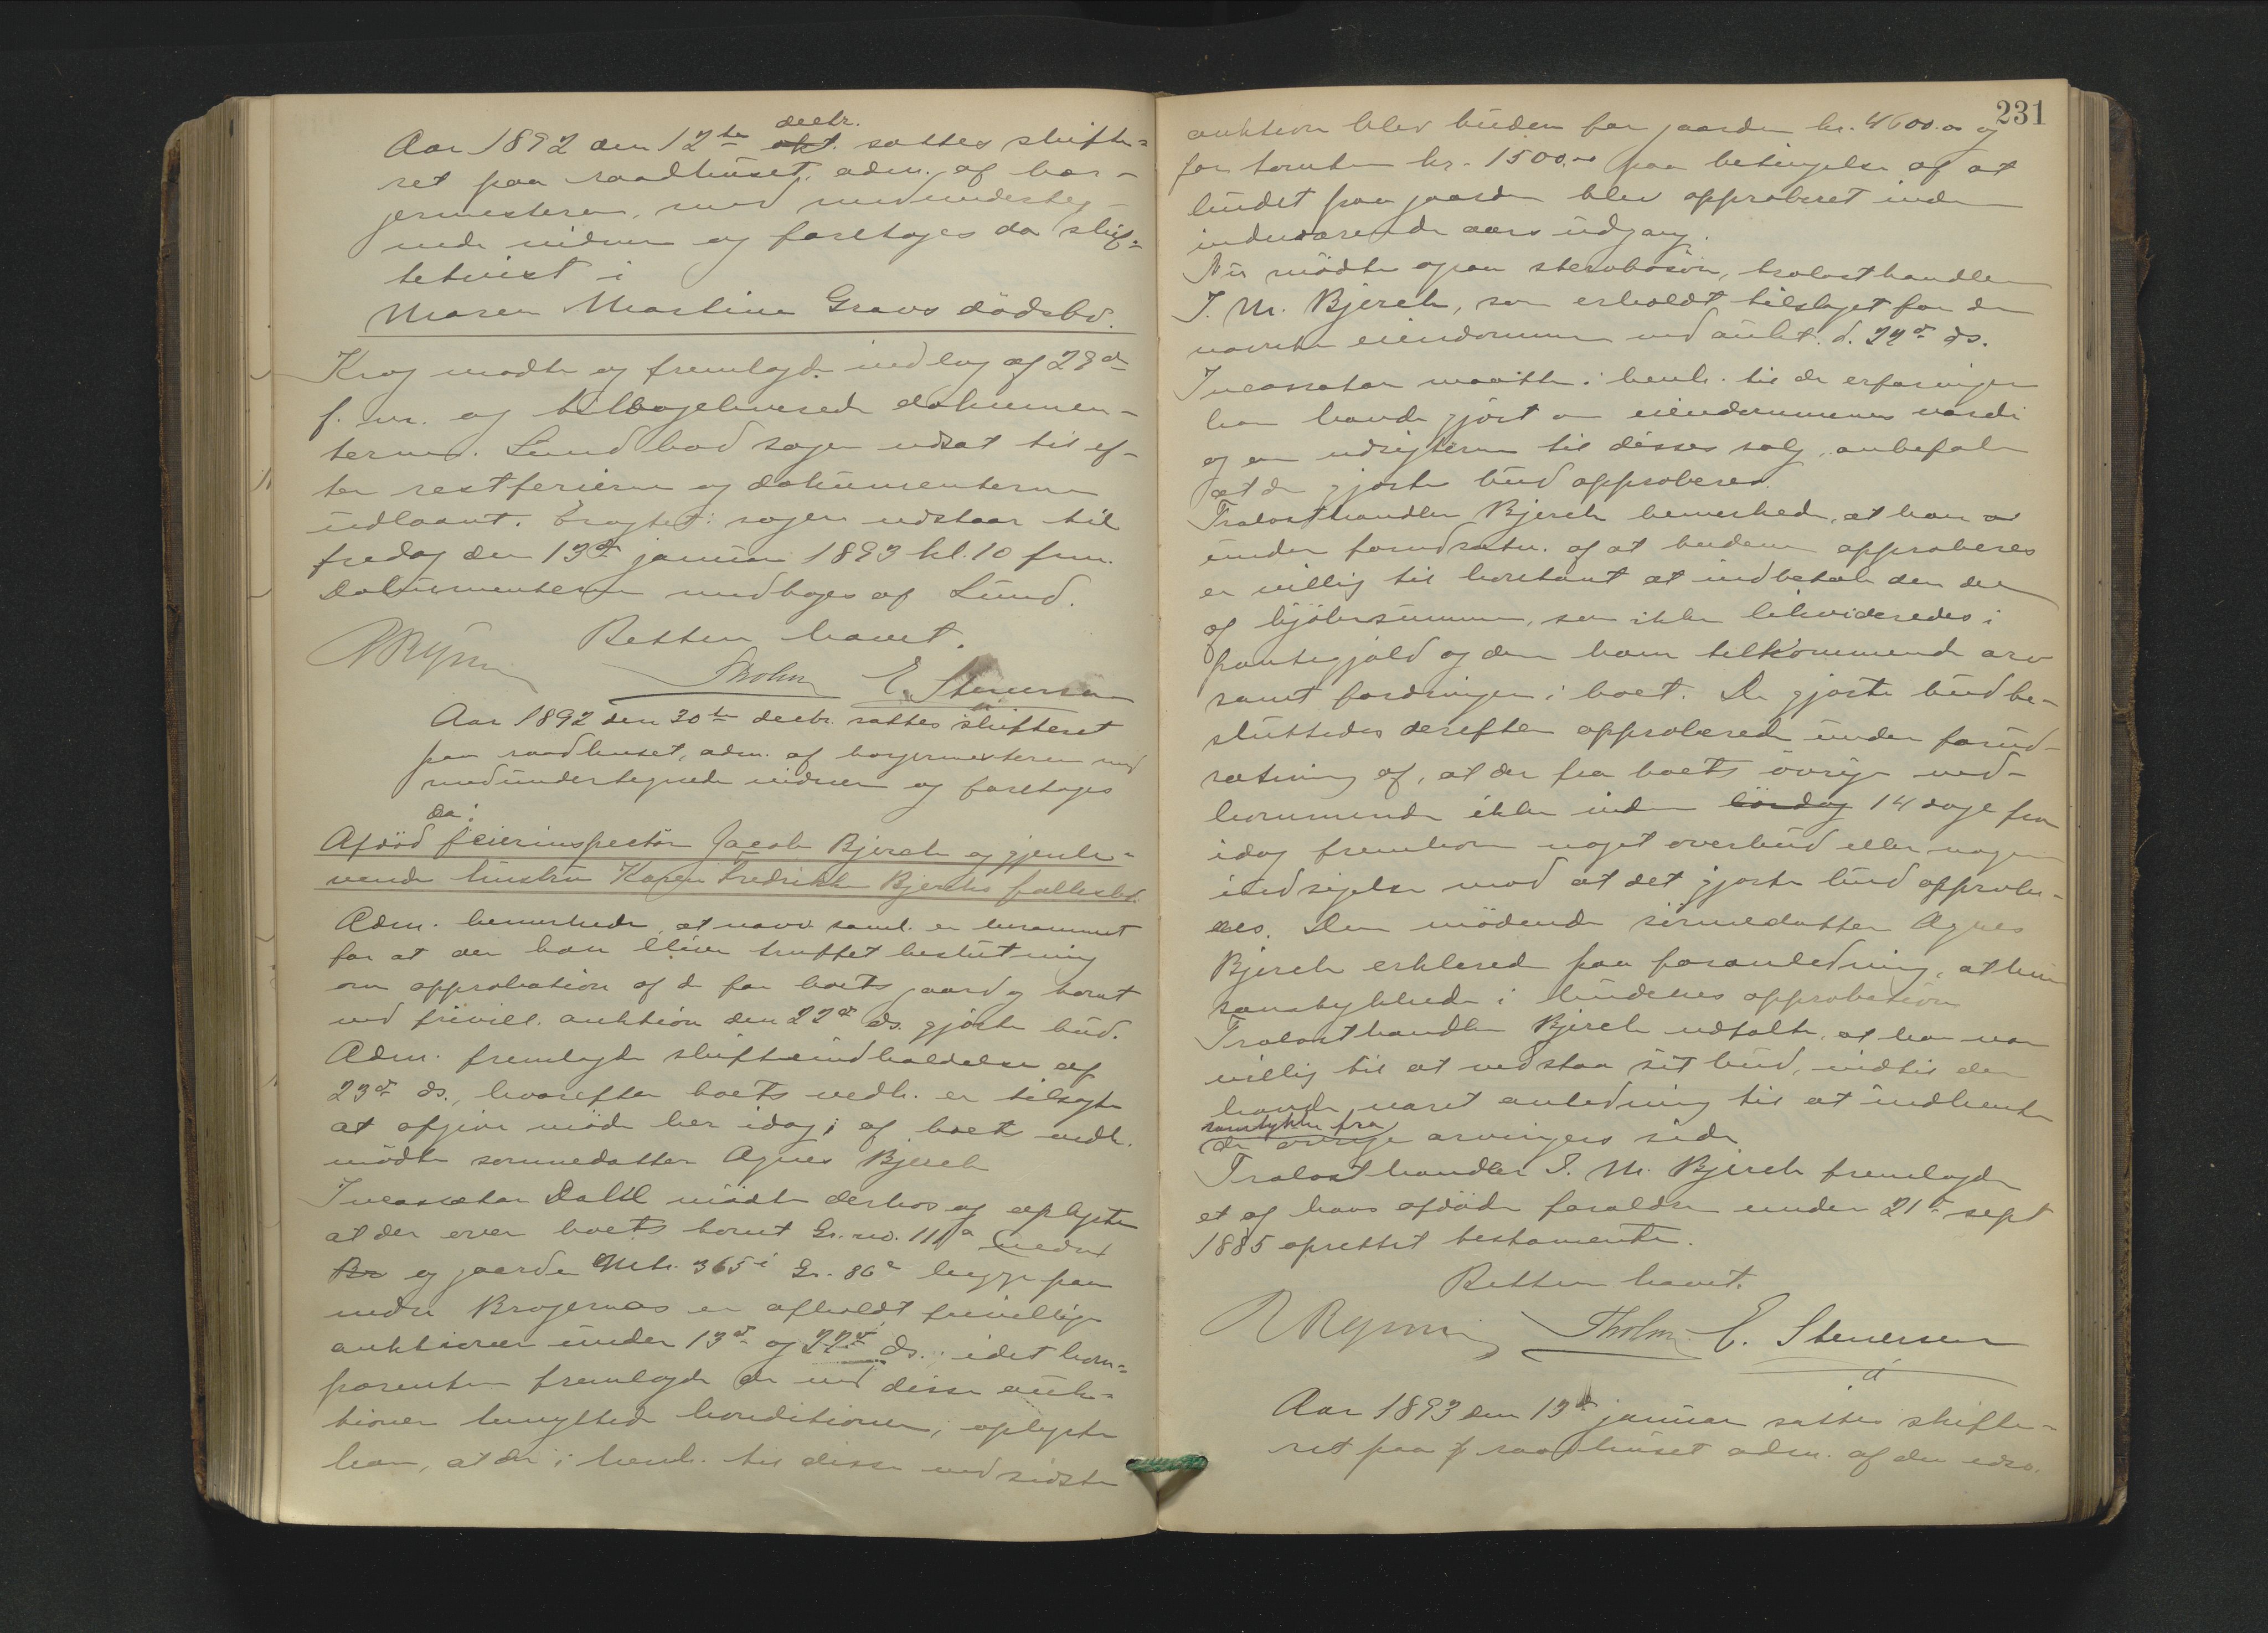 Aar 1892 den 12te decbr. sattes skifte=
ret paa raadhuset, adm. af bor-
germesteren, med medunderteg-
nede vidner og foretoges da skif-
tetvist i
Maren Martine Gravs dödsbo.
Krog mødte og fremlagde indlæg af 28de
f. m. og tilbageleverede dokumen-
terne. Lund bad sagen udsat til ef-
ter retsferierne og dokumenterne
udlaant. Eragtet: sagen udstaar til
fredag den 13de januar 1893 kl. 10 fm.
Dokumenterne medtoges af Lund.
Retten hævet.
Tholm E. Stenersen
Aar 1892 den 30te decbr. sattes skifteret
paa raadhuset, adm. af borgermesteren med
medundertegnede vidner og foretoges
da:
Afdöd feierinspectör Jacob Bjerch og gjenle-
vende hustru Karen Fredrikke Bjerchs fællesbo.
Adm. bemerkede, at nærv. saml. er berammet
for at der kan blive truffet beslutning
om approbation af de for boets gaard og tomt
ved frivill. auktion den 22de ds. gjorte bud.
Adm. fremlagde skifteindkaldelse af
23de ds., hvorefter boets vedk. er tilsagte
at afgive møde her idag; af boets vedk.
mödte sønnedatter Agnes Bjerch
Incassator Dahl mödte derhos og oplyste
at der over boets tomt Gr. no. 111a nedre
Br og gaarden Mtr. 365 i Gr. 86a begge paa
nedre Bragernes er afholdt frivillige
auktioner under 13de og 22de ds.; idet kom-
parenten fremlagde de ved disse auk-
tioner benyttede konditioner, oplyste
han, at der i henh. til disse ved sidste
231
auktion blev buden for gaarden kr. 4600.00 og
for tomten kr. 1500.00 paa betingelse af at
budet paa gaarden blev approberet inden
indeværende aars udgang.
Nu mödte ogsaa sterbosön, trælasthandler
J. M. Bjerch, som erholdt tilslaget for de
nævnte eiendomme ved aukt. d. 22de ds.
Incassator maatte i henh. til de erfaringer
han havde gjort om eiendommenes værdi
og om udsigterne til disses salg, anbefale
at de gjorte bud approberes.
Trælasthandler Bjerch bemerkede, at han
under forudsætn. af at budene approberes
er villig til kontant at indbetale den del
af kjöbesummen, som ikke likvideredes i
pantegjæld og den ham tilkommende arv
samt fordringer i boet. De gjorte bud be-
sluttedes derefter approberede under forud-
sætning af, at der fra boets övrige ved-
kommende ikke inden lördag 14 dage fra
idag fremkom noget overbud eller nogen
indsigelse mod at det gjorte bud approbe-
res. Den mödende sönnedatter Agnes
Bjerch erklærede paa foranledning, at hun
samtykkede i budenes approbation
Trælasthandler Bjerch udtalte, at han var
villig til at vedstaa sit bud, indtil der
havde været anledning til at indhente
samtykke fra
de övrige arvingers side
Trælasthandler J. M. Bjerch fremlagde
et af hans afdöde forældre under 21de sept
1885 oprettet testamente.
Retten hævet.
Tholm E. Stenersen
Aar 1893 den 13de januar sattes skifte-
ret paa raadhuset adm. af den edsv.